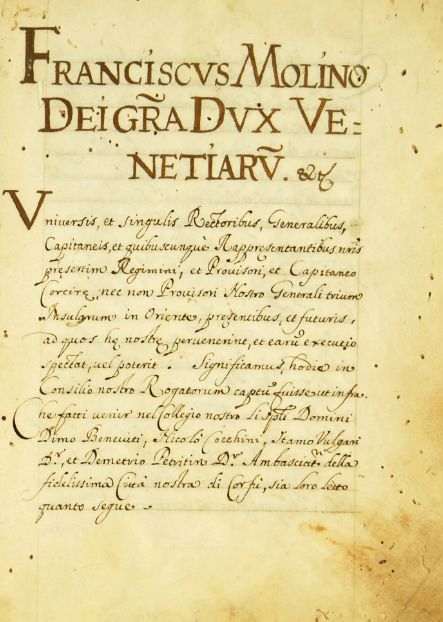 FRANCISCVS MOLINO
DEI GR̃A DVX VE=
NETIARṼ. &c
Vniuersis, et singulis Rectoribus, Generalibus,
Capitaneis, et quibuscunque Rappresentantibus nr̃is
presertim Regimini, et Prouisori, et Capitaneo
Corcirę, nec non Prouisori Nostro Generali trium
Insularum in Oriente, pręsentibus, et futuris,
ad quos hę nostrę peruenerint, et earũ executio
spectat, uel poterit. Significamus, hodie in
Consilio nostro Rogatorum captũ fuisse ut infra.
Che fatti uenir nel Collegio nostro li Domini
Dimo Beneuiti, Nicolò Cocchini, Stamo Vulgari
Dr., et Demetrio Petritin Dr. Ambasciatri della
fidelissima Città nostra di Corfù, sia loro letto
quanto segue